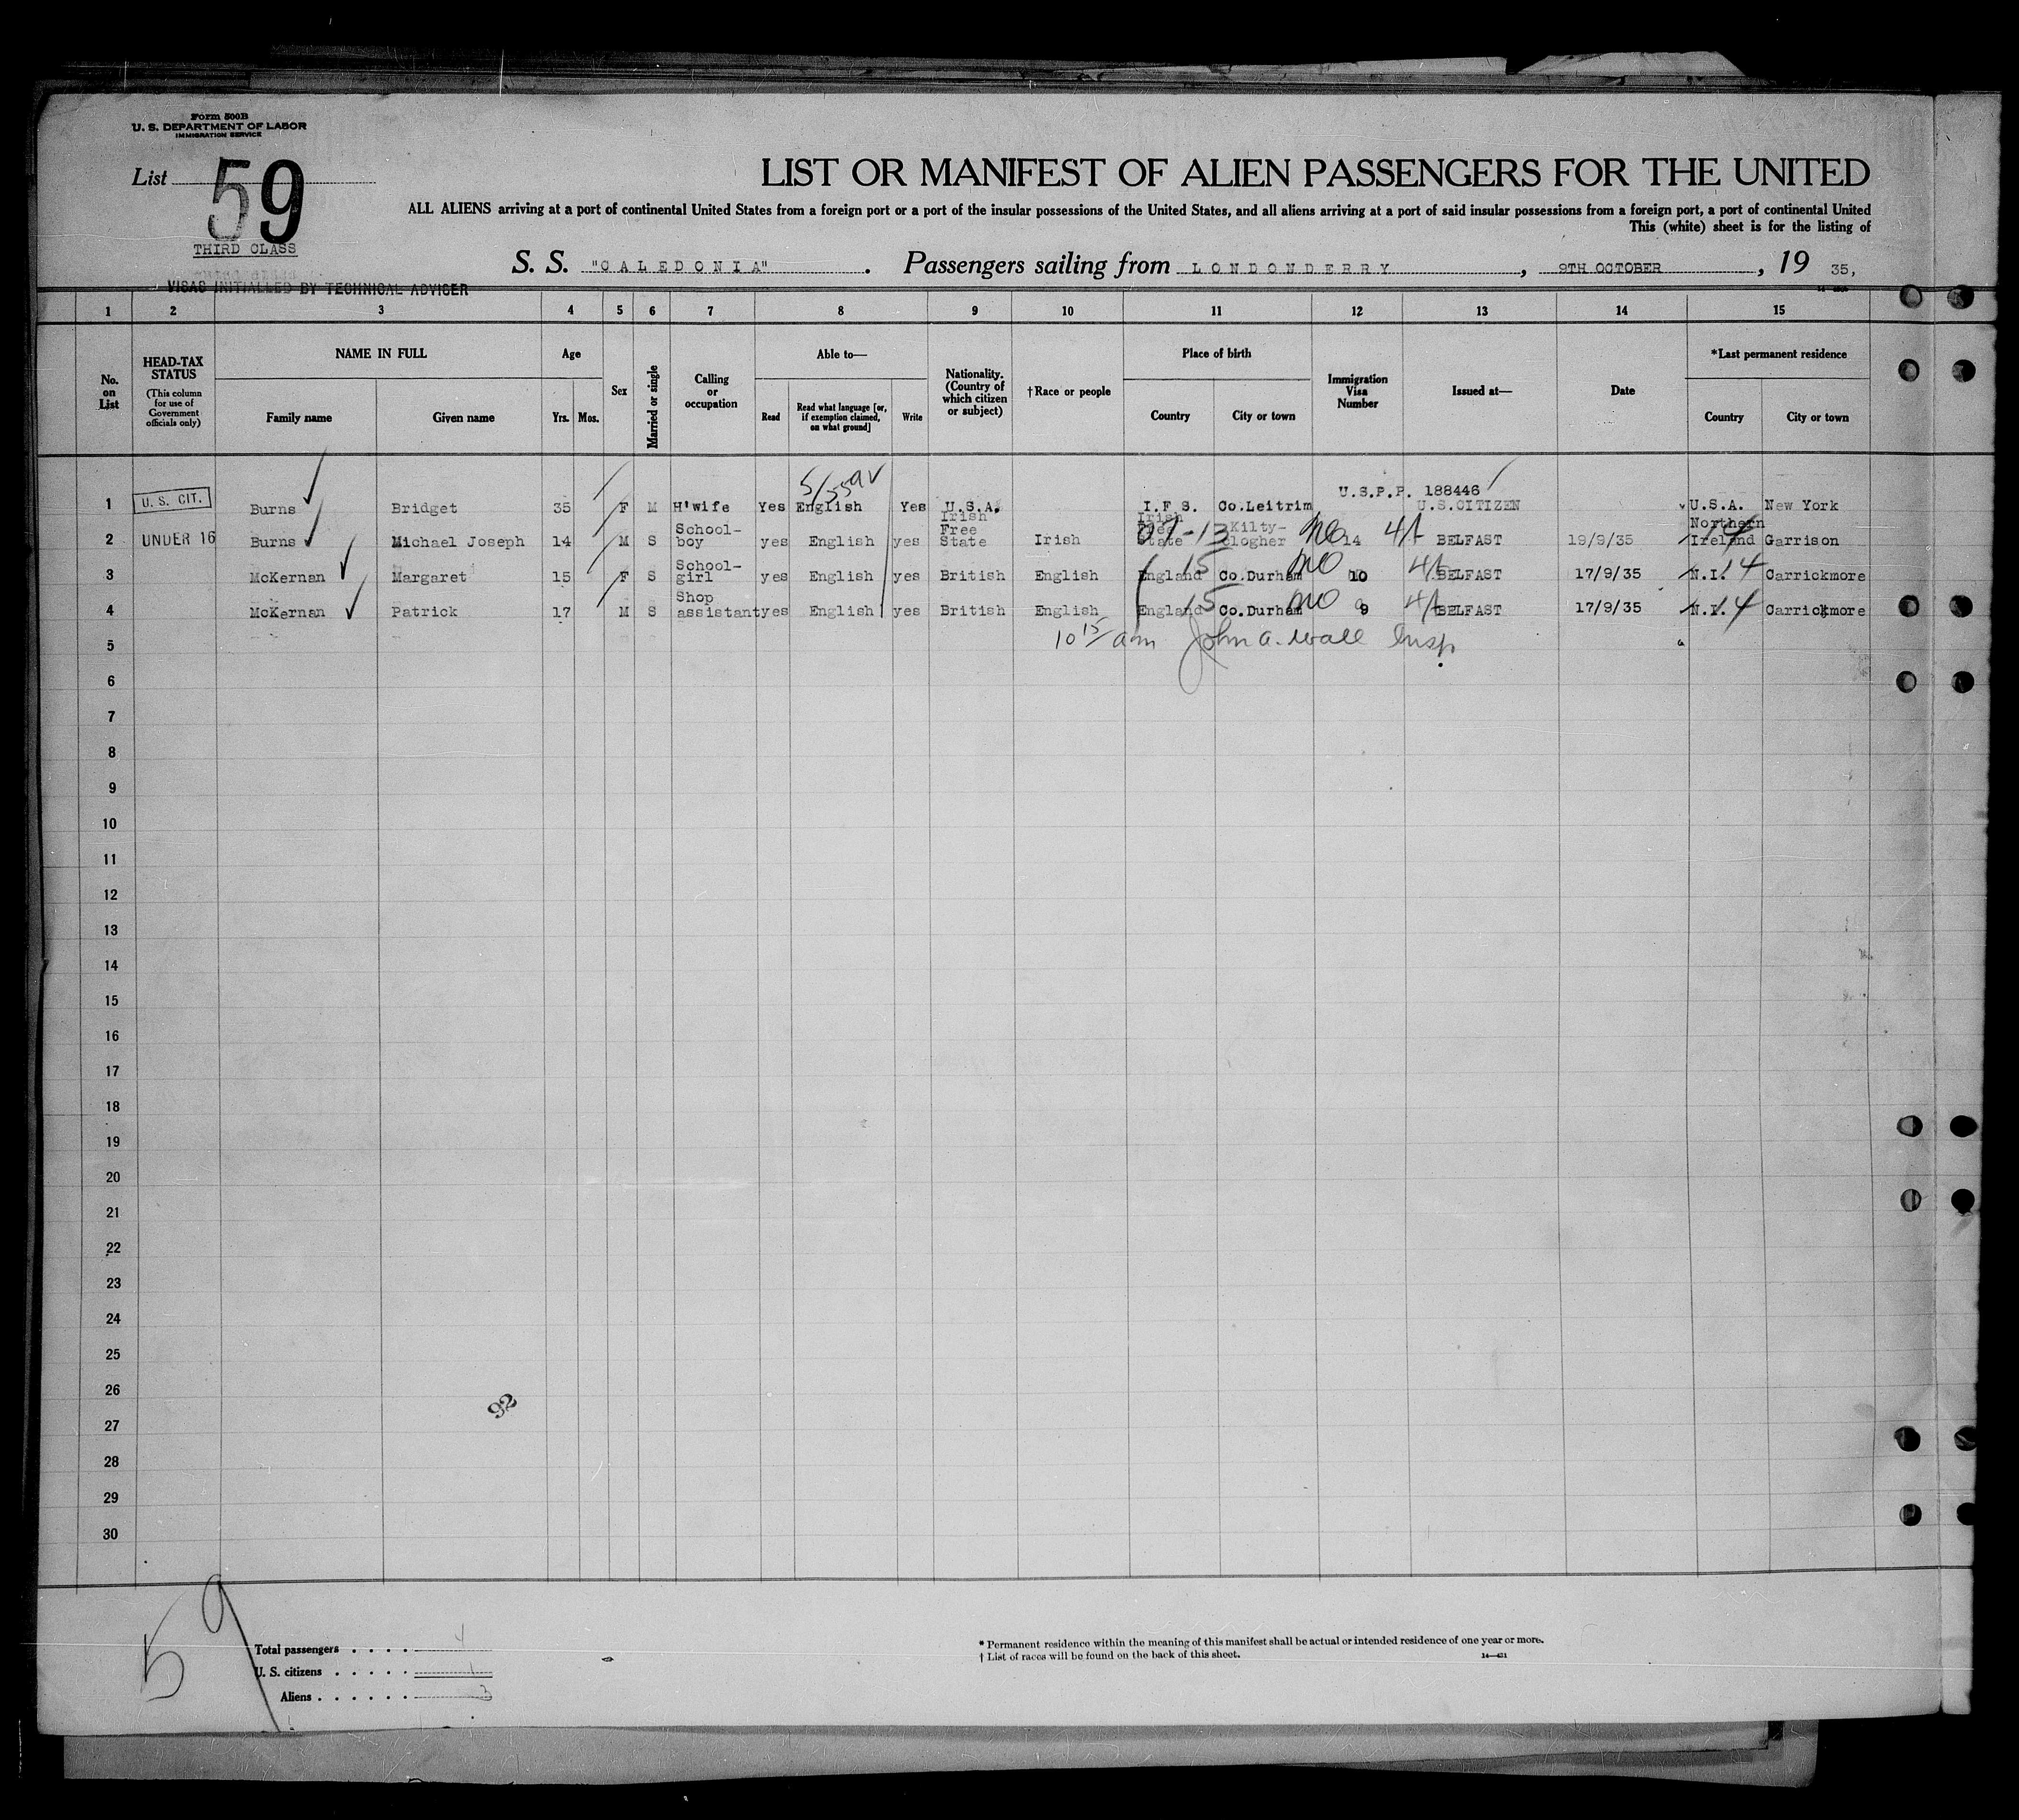 Form 500B
U. S. DEPARTMENT OF LABOR
IMMIGRATION SERVICE
List 59
THIRD CLASS
VISAS INITIALLED BY TECHNICAL ADVISER
LIST OR MANIFEST OF ALIEN PASSENGERS FOR THE UNITED
ALL ALIENS arriving at a port of continental United States from a foreign port or a port of the insular possessions of the United States, and all aliens arriving at a port of said insular possessions from a foreign port, a port of continental United
This (white) sheet is for the listing of
S. S. "CALEDONIA" . Passengers sailing from LONDONDERRY , 9TH OCTOBER , 19 35,
1 2 3 4 5 6 7 8 9 10 11 12 13 14 15
No. on List
HEAD-TAX STATUS
(This column for use of Government officials only)
NAME IN FULL
Family name Given name
Age
Yrs. Mos.
Sex
Married or single
Calling or occupation
Able to—
Read
Read what language [or, if exemption claimed, on what ground]
Write
Nationality. (Country of which citizen or subject)
†Race or people
Place of birth
Country City or town
Immigration Visa Number
Issued at—
Date
*Last permanent residence
Country City or town
1 U. S. CIT. Burns Bridget 35 F M H'wife Yes English Yes U.S.A. I.F S. Co.Leitrim U.S.P.P. 188446 U.S.CITIZEN U.S.A. New York
2 UNDER 16 Burns Michael Joseph 14 M S School-boy yes English yes Irish Free State Irish Irish Free State Kilty-clogher no 14 BELFAST 19/9/35 Northern Ireland 14 Garrison
3 McKernan Margaret 15 F S School-girl yes English yes British English England 15 Co.Durham no 10 BELFAST 17/9/35 N.I. 14 Carrickmore
4 McKernan Patrick 17 M S Shop assistant yes English yes British English England 15 Co.Durham no 9 BELFAST 17/9/35 N.I. 14 Carrickmore
5 10 15/ am John A. Wall Insp
6
7
8
9
10
11
12
13
14
15
16
17
18
19
20
21
22
23
24
25
26
92
27
28
29
30
59
Total passengers . . . . 4
U. S. citizens . . . . . 1
Aliens . . . . . . 3
* Permanent residence within the meaning of this manifest shall be actual or intended residence of one year or more.
† List of races will be found on the back of this sheet.